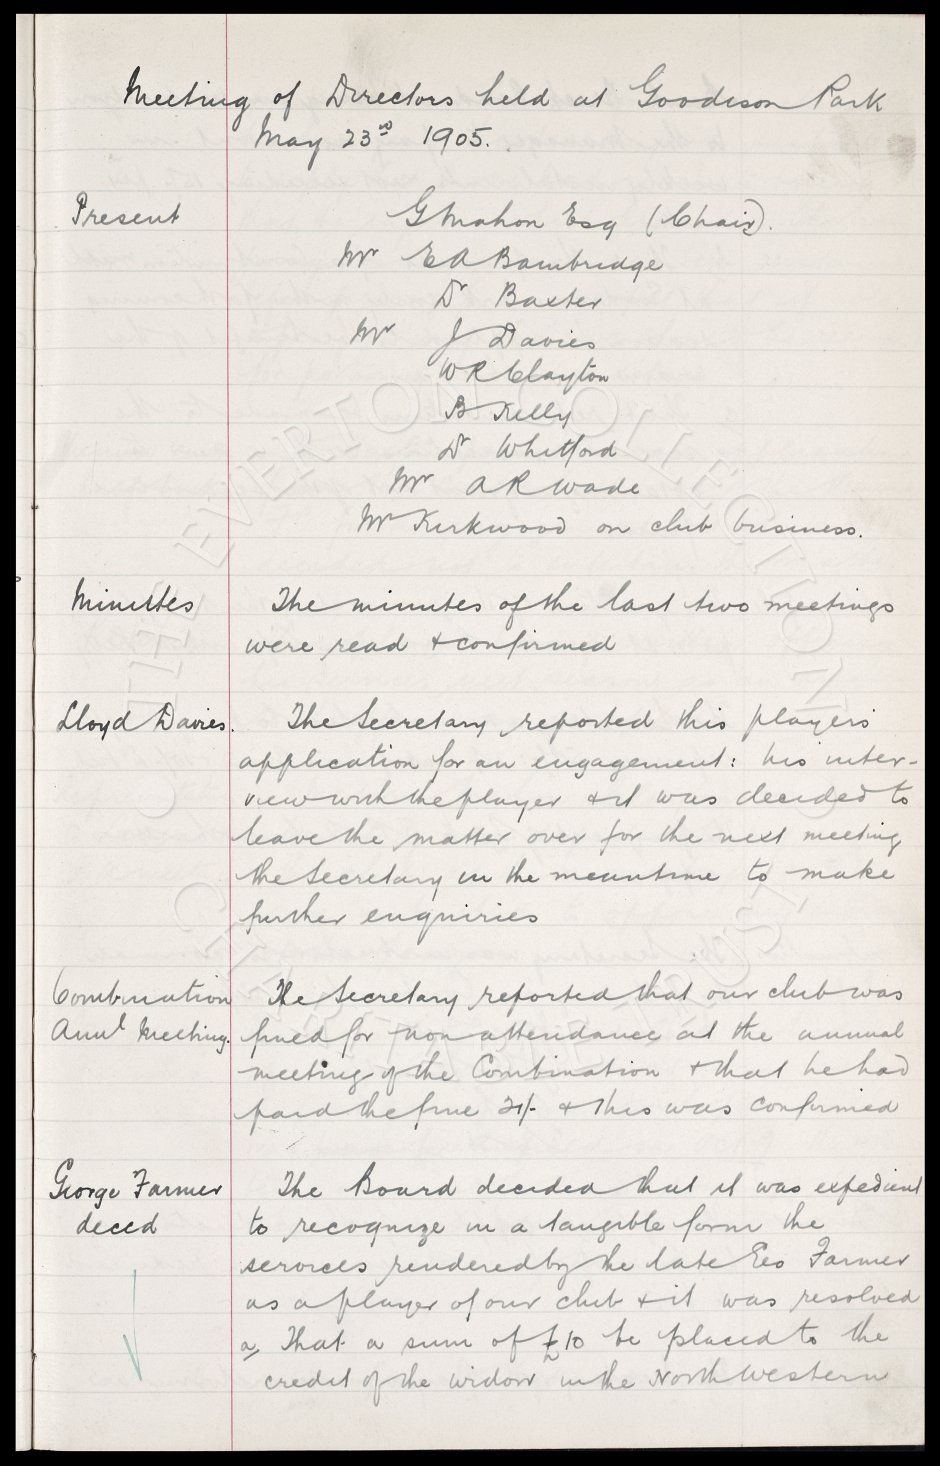 Meeting of Directors held at Goodison Park
May 23rd 1905.
Present
G Mahon Esq (Chair).
Mr E A Bainbridge
Dr Baxter
Mr J Davies
W R Clayton
B Kelly
Dr Whitford
Mr A R Wade
Mr Kirkwood on club business.
Minutes The minutes of the last two meetings
were read & confirmed
Lloyd Davies. The Secretary reported this players'
application for an engagement: his inter-
view with the player & it was decided to
leave the matter over for the next meeting
the Secretary in the meantime to make
further enquiries
Combination The Secretary reported that our club was
Annl Meeting. fined for non attendance at the annual
meeting of the Combination & that he had
paid the fine 21/- & this was confirmed
George Farmer The Board decided that it was expedient
deced to recognize in a tangible form the
services rendered by the late Geo Farmer
as a player of our club & it was resolved
a, That a sum of £10 be placed to the
credit of the widow in the North Western
THE EVERTON COLLECTION
CHARITABLE TRUST